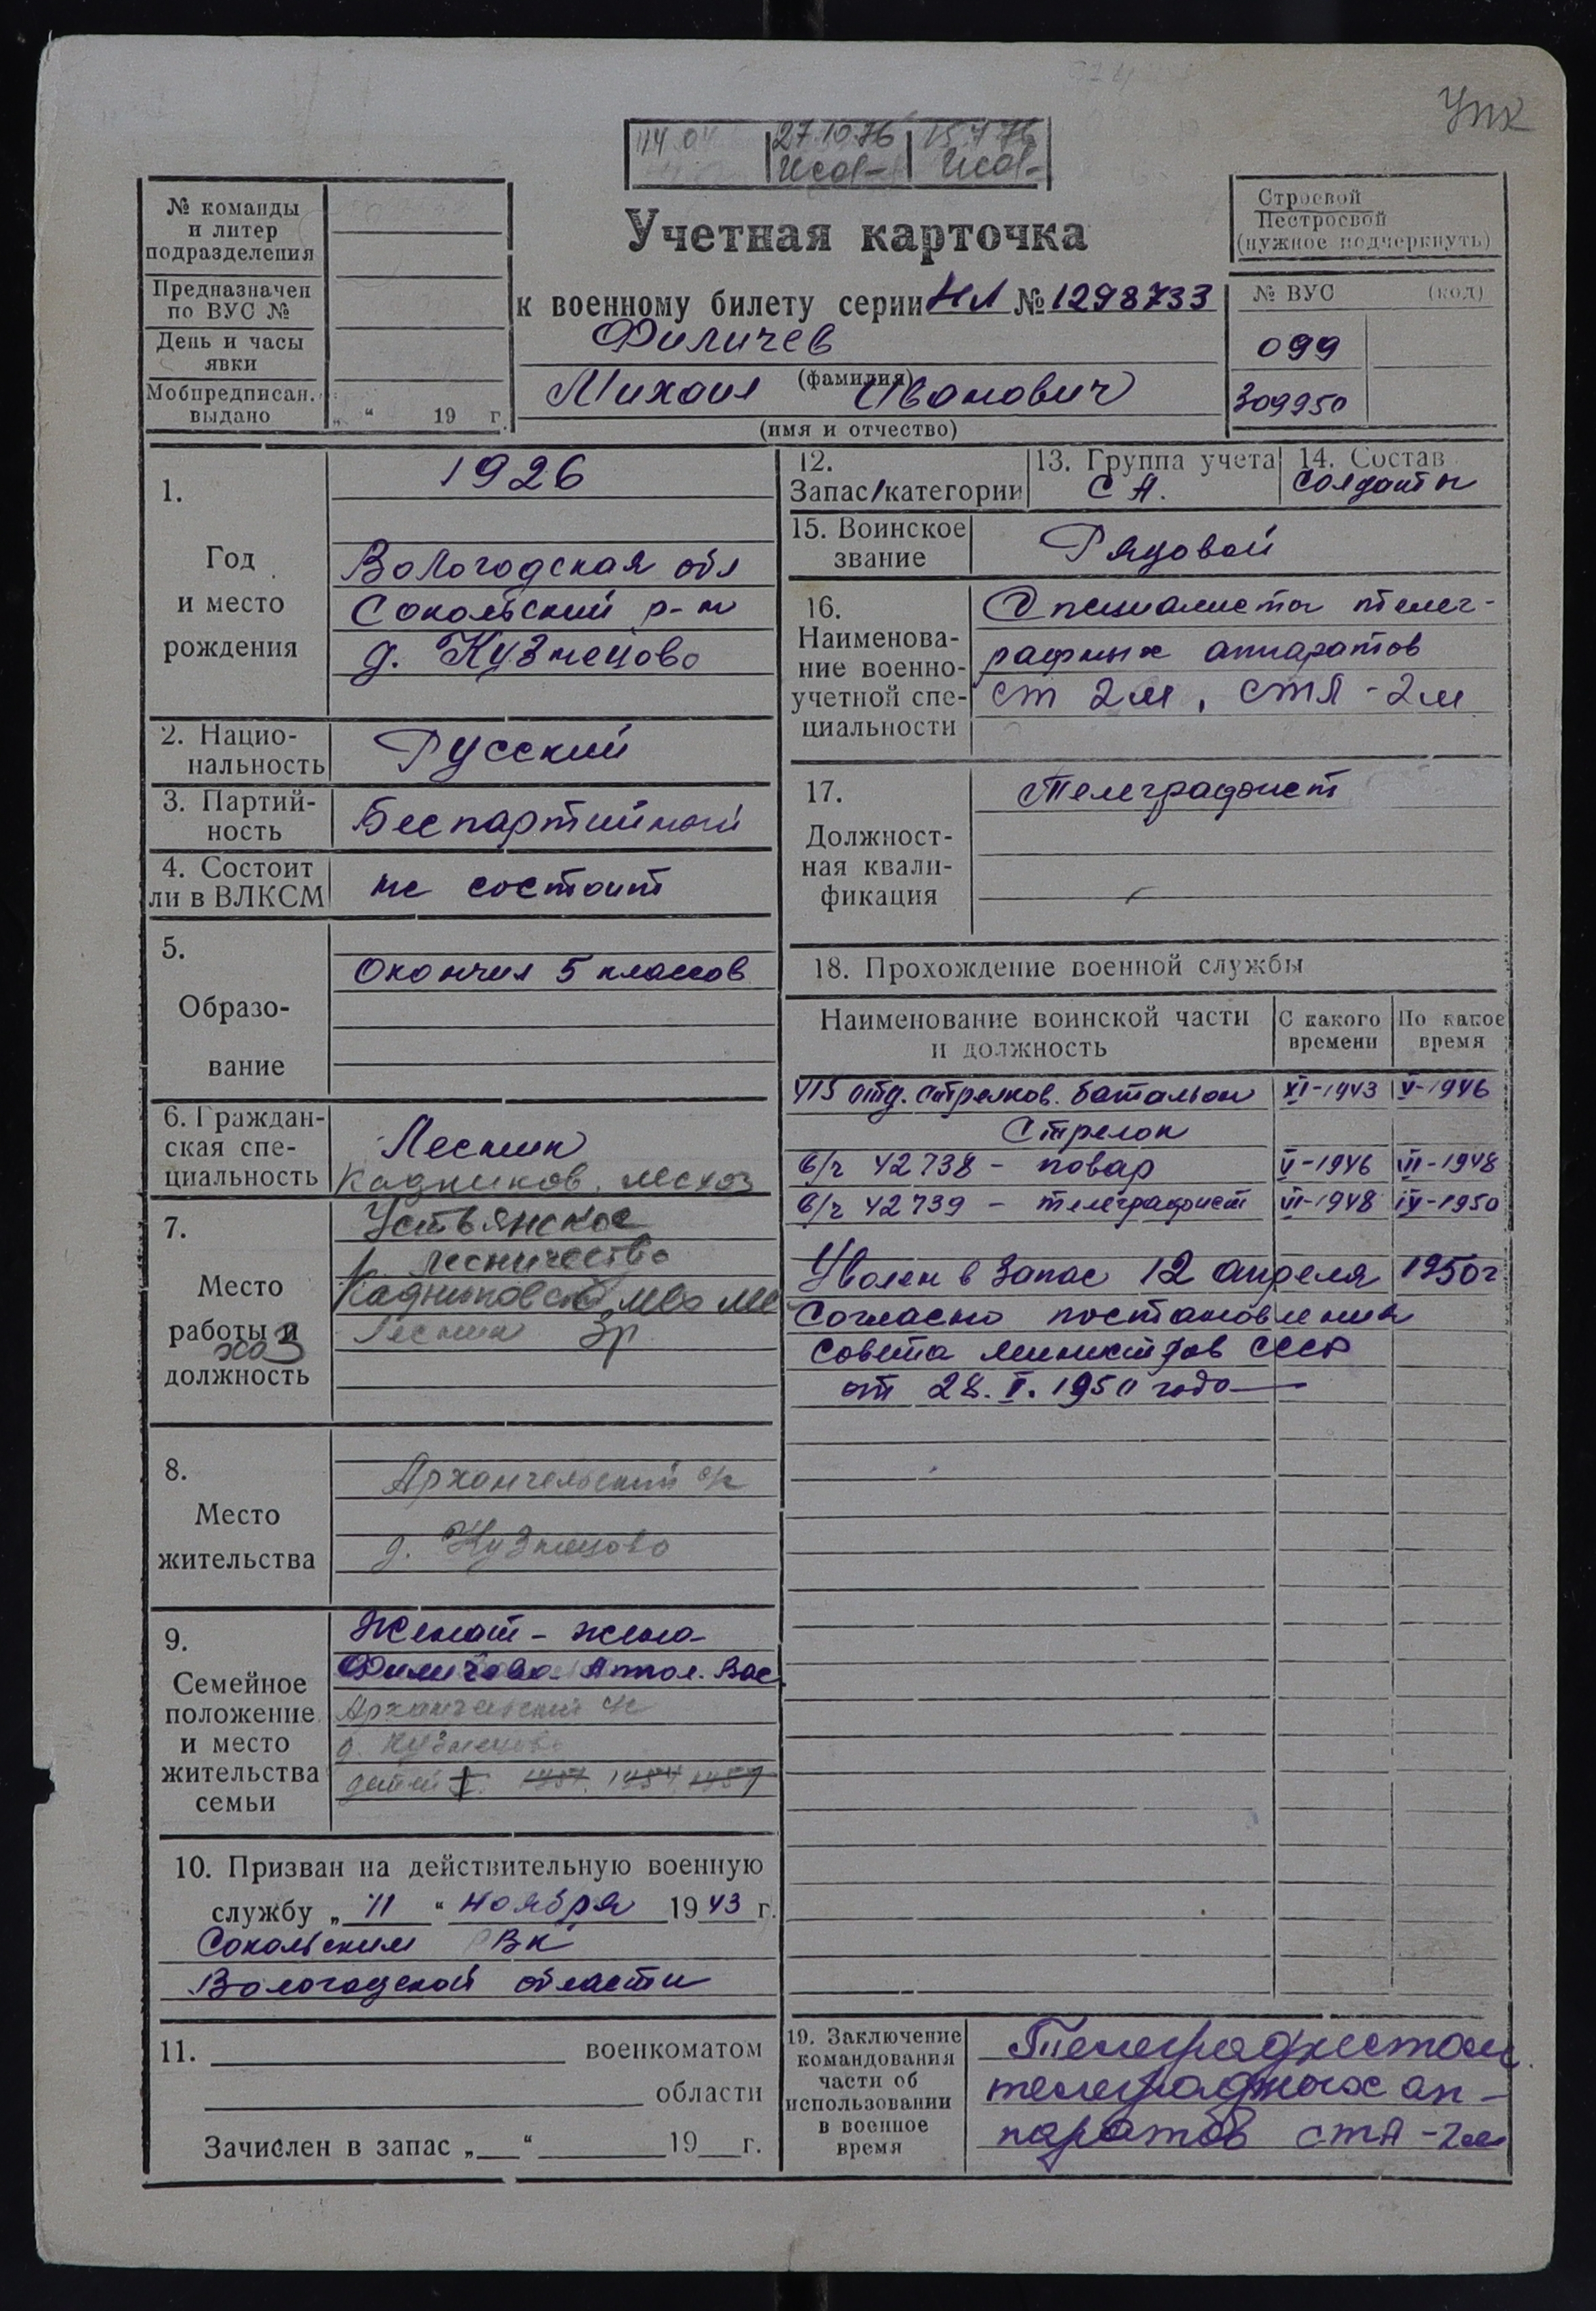 УПК
27.10.76
№ команды
и литер
подразделения
Предназначен
по ВУС №
День и часы
явки
Мобпредписан.
выдано
„ “ 19 г.
Учетная карточка
к военному билету серии НЛ № 1298733
Филичев
(фамилия)
Михаил Иванович
(имя и отчество)
Строевой
Нестроевой
(нужное подчеркнуть)
№ ВУС (код)
099
309950
1.
Год
и место
рождения
1926
Вологодская обл
Сокольский р-н
д. Кузнецово
2. Нацио-
нальность
Русский
3. Партий-
ность
Беспартийный
4. Состоит
ли в ВЛКСМ
не состоит
5.
Образо-
вание
Окончил 5 классов
6. Граждан-
ская спе-
циальность
Лесник
Кадников. лесхоз
7.
Место
работы и
должность
Устьянское
лесничество
Лесник
8.
Место
жительства
Архангельский с/с
д. Кузнецово
9.
Семейное
положение
и место
жительства
семьи
Женат - жена
Филичева Вас
Архангельский с/с
д. Кузнецово
детей 1957 1954
10. Призван на действительную военную
службу „ 11 “ ноября 1943 г.
Сокольским РВК
Вологодской области
11. военкоматом
области
Зачислен в запас „ “ 19 г.
12.
Запас/категории
13. Группа учета
СА.
14. Состав
Солдаты
15. Воинское
звание
Рядовой
16.
Наименова-
ние военно-
учетной спе-
циальности
Специалисты телег-
рафных аппаратов
ст 2м, стА-2м
17.
Должност-
ная квали-
фикация
Телеграфист
18. Прохождение военной службы
Наименование воинской части
и должность
С какого
времени
По какое
время
415 отд. стрелков. батальон XI-1943 V-1946
Стрелок
в/ч 42738 - повар V-1946 VI-1948
в/ч 42739 - телеграфист VI-1948 IV-1950
Уволен в запас 12 апреля 1950г
Согласно постановления
Совета министров СССР
от 28. 1950 года
19. Заключение
командования
части об
использовании
в военное
время
Телеграфистом
телеграфных ап-
паратов стА-2м